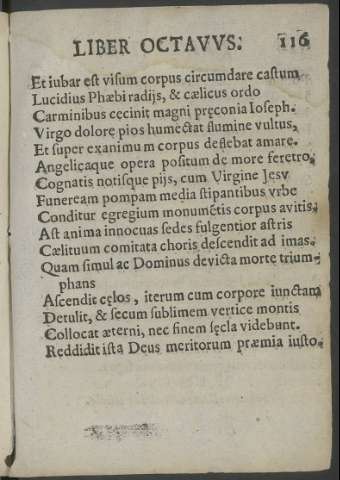 LIBER OCTAVVS. 116
Et iubar est visum corpus circumdare castum
Lucidius Phæbi radijs, & cælicus ordo
Carminibus cecinit magni pręconia Ioseph.
Virgo dolore pios humectat flumine vultus,
Et super exanimum corpus deflebat amare.
Angelicaque opera positum de more feretro,
Cognatis notisque pijs, cum Virgine Jesv
Funeream pompam media stipantibus vrbe
Conditur egregium monumẽtis corpus avitis,
Ast anima innocuas sedes fulgentior astris
Cælituum comitata choris descendit ad imas.
Quam simul ac Dominus devicta morte trium-
phans
Ascendit cęlos, iterum cum corpore iunctam
Detulit, & secum sublimem vertice montis
Collocat æterni, nec finem sęcla videbunt.
Reddidit ista Deus meritorum præmia iusto.